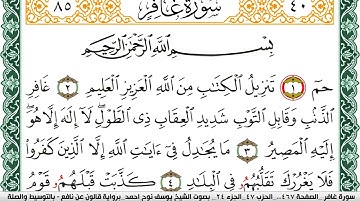 ٤٠ سُورَةُ غَافِرٍ ٨٥
بِسْمِ اللَّهِ الرَّحْمَٰنِ الرَّحِيمِ
حمٓ ١ تَنزِيلُ الْكِتَٰبِ مِنَ اللَّهِ الْعَزِيزِ الْعَلِيمِ ٢ غَافِرِ
الذَّنۢبِ وَقَابِلِ التَّوْبِ شَدِيدِ الْعِقَابِ ذِى الطَّوْلِ لَآ إِلَٰهَ إِلَّا هُوَ
إِلَيْهِ الْمَصِيرُ ٣ مَا يُجَٰدِلُ فِىٓ ءَايَٰتِ اللَّهِ إِلَّا الَّذِينَ كَفَرُوا
فَلَا يَغْرُرْكَ تَقَلُّبُهُمُۥ فِى الْبِلَٰدِ ٤ كَذَّبَتْ قَبْلَهُمُۥ قَوْمُ
سورة غافر . الصفحة ٤٦٧ . الحزب ٤٧ . الجزء ٢٤ . بصوت الشيخ يوسف نوح احمد . برواية قالون عن نافع - بالتوسيط والصلة